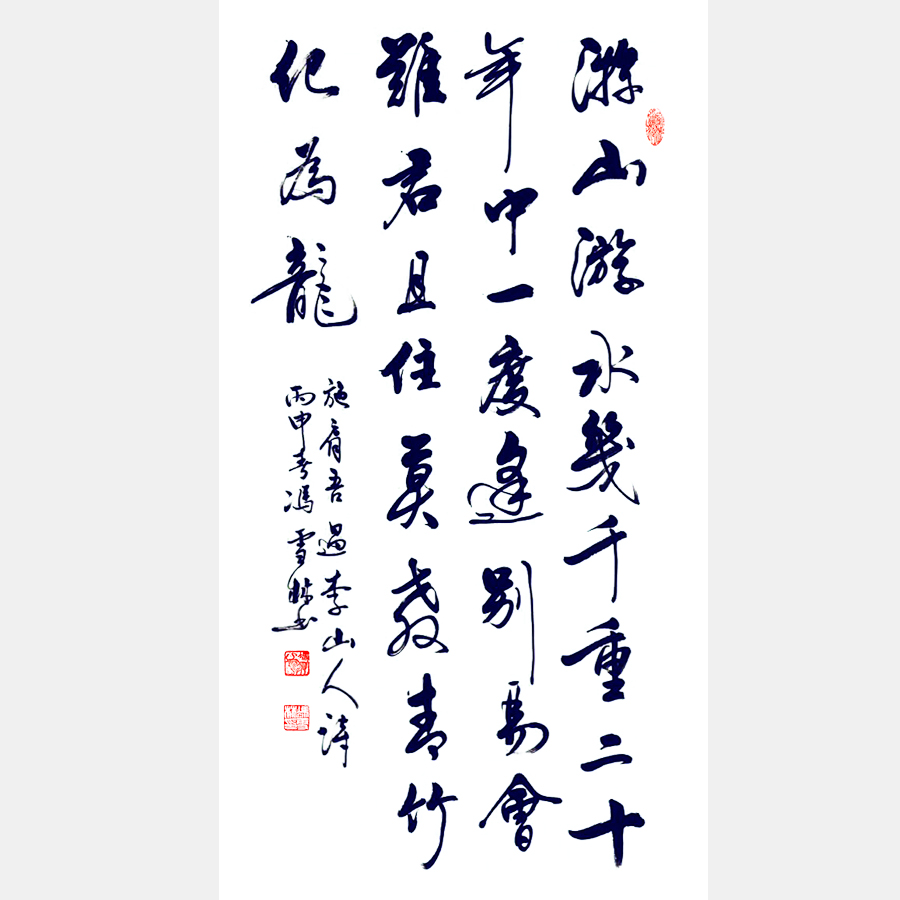 游山游水幾千重二十
年中一度逢別易會
難君且住莫教青竹
化為龍
施肩吾遇李山人詩
丙申春馮雪書